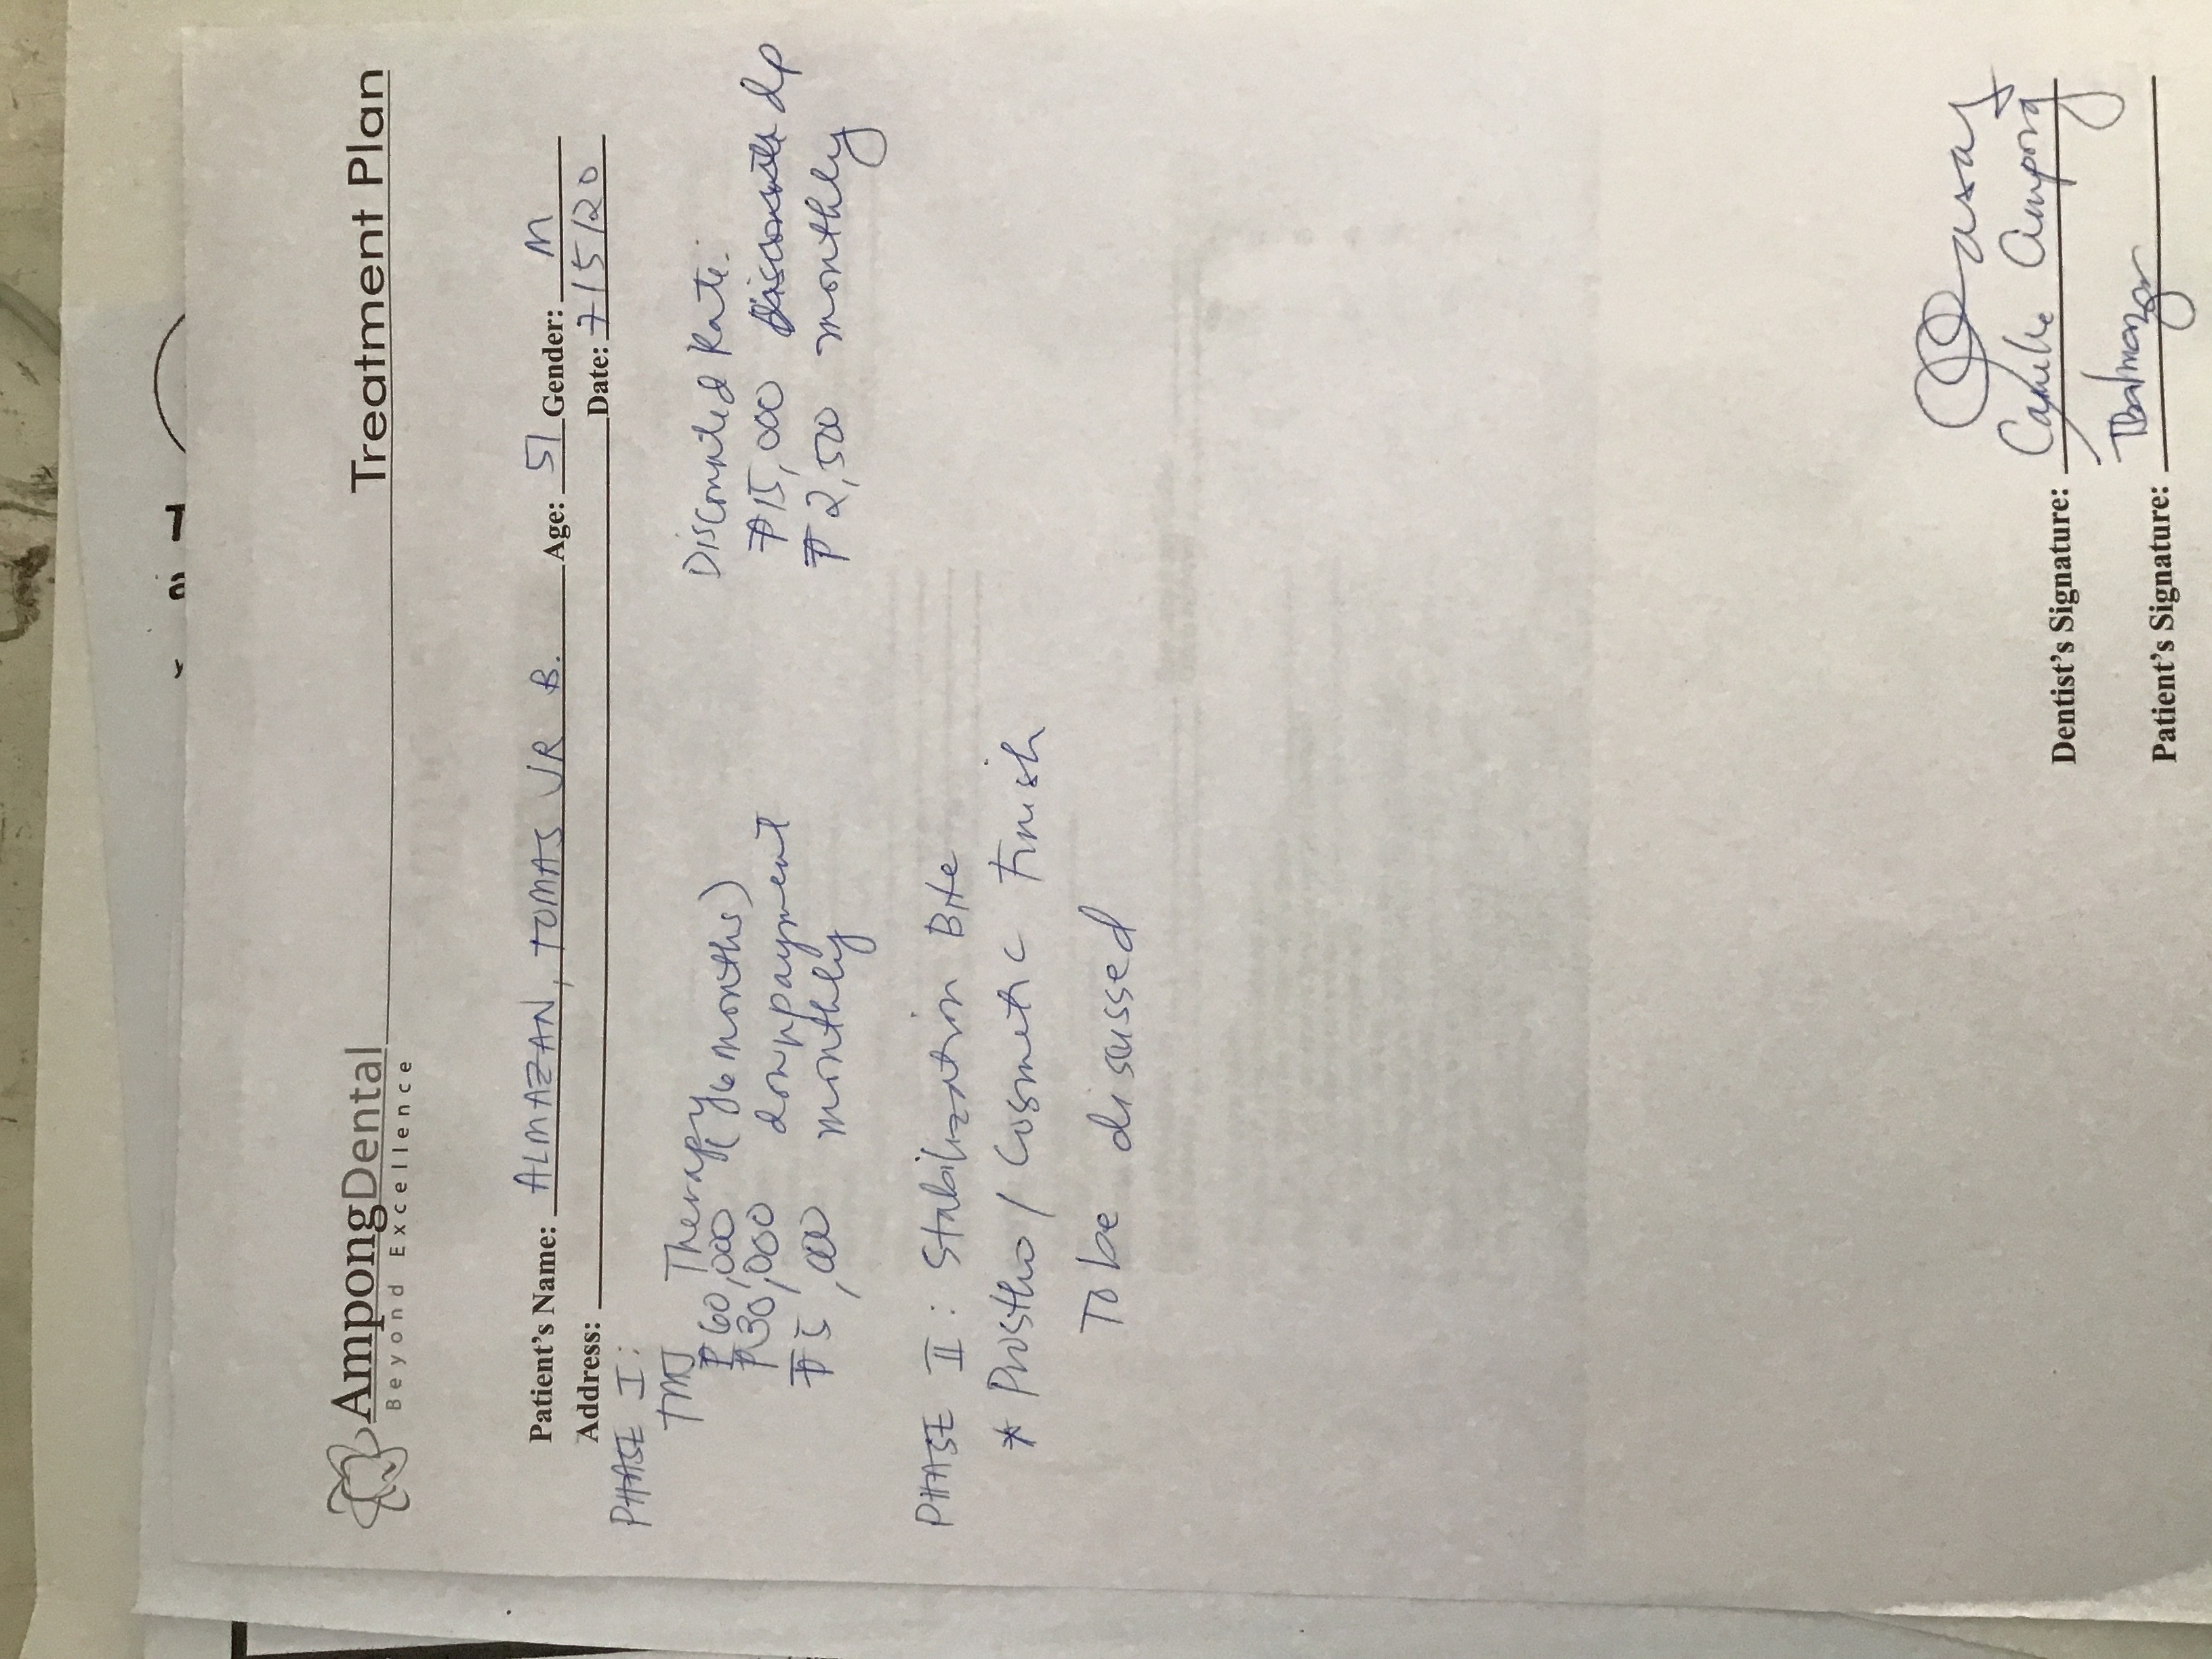 AmpongDental
Beyond Excellence
Treatment Plan
Patient's Name: ALMAZAN, TOMAS JR B. Age: 51 Gender: M
Address: Date: 7/15/20
PHASE I:
TMJ Therapy (6 months)
₱60,000
₱30,000 downpayment
₱5,000 monthly
Discounted Rate:
₱15,000 dp
₱2,500 monthly
PHASE II: Stabilization Bite
* Prostho / Cosmetic Finish
To be discussed
Dentist's Signature: Camille Ampong
Patient's Signature: TBAlmazan